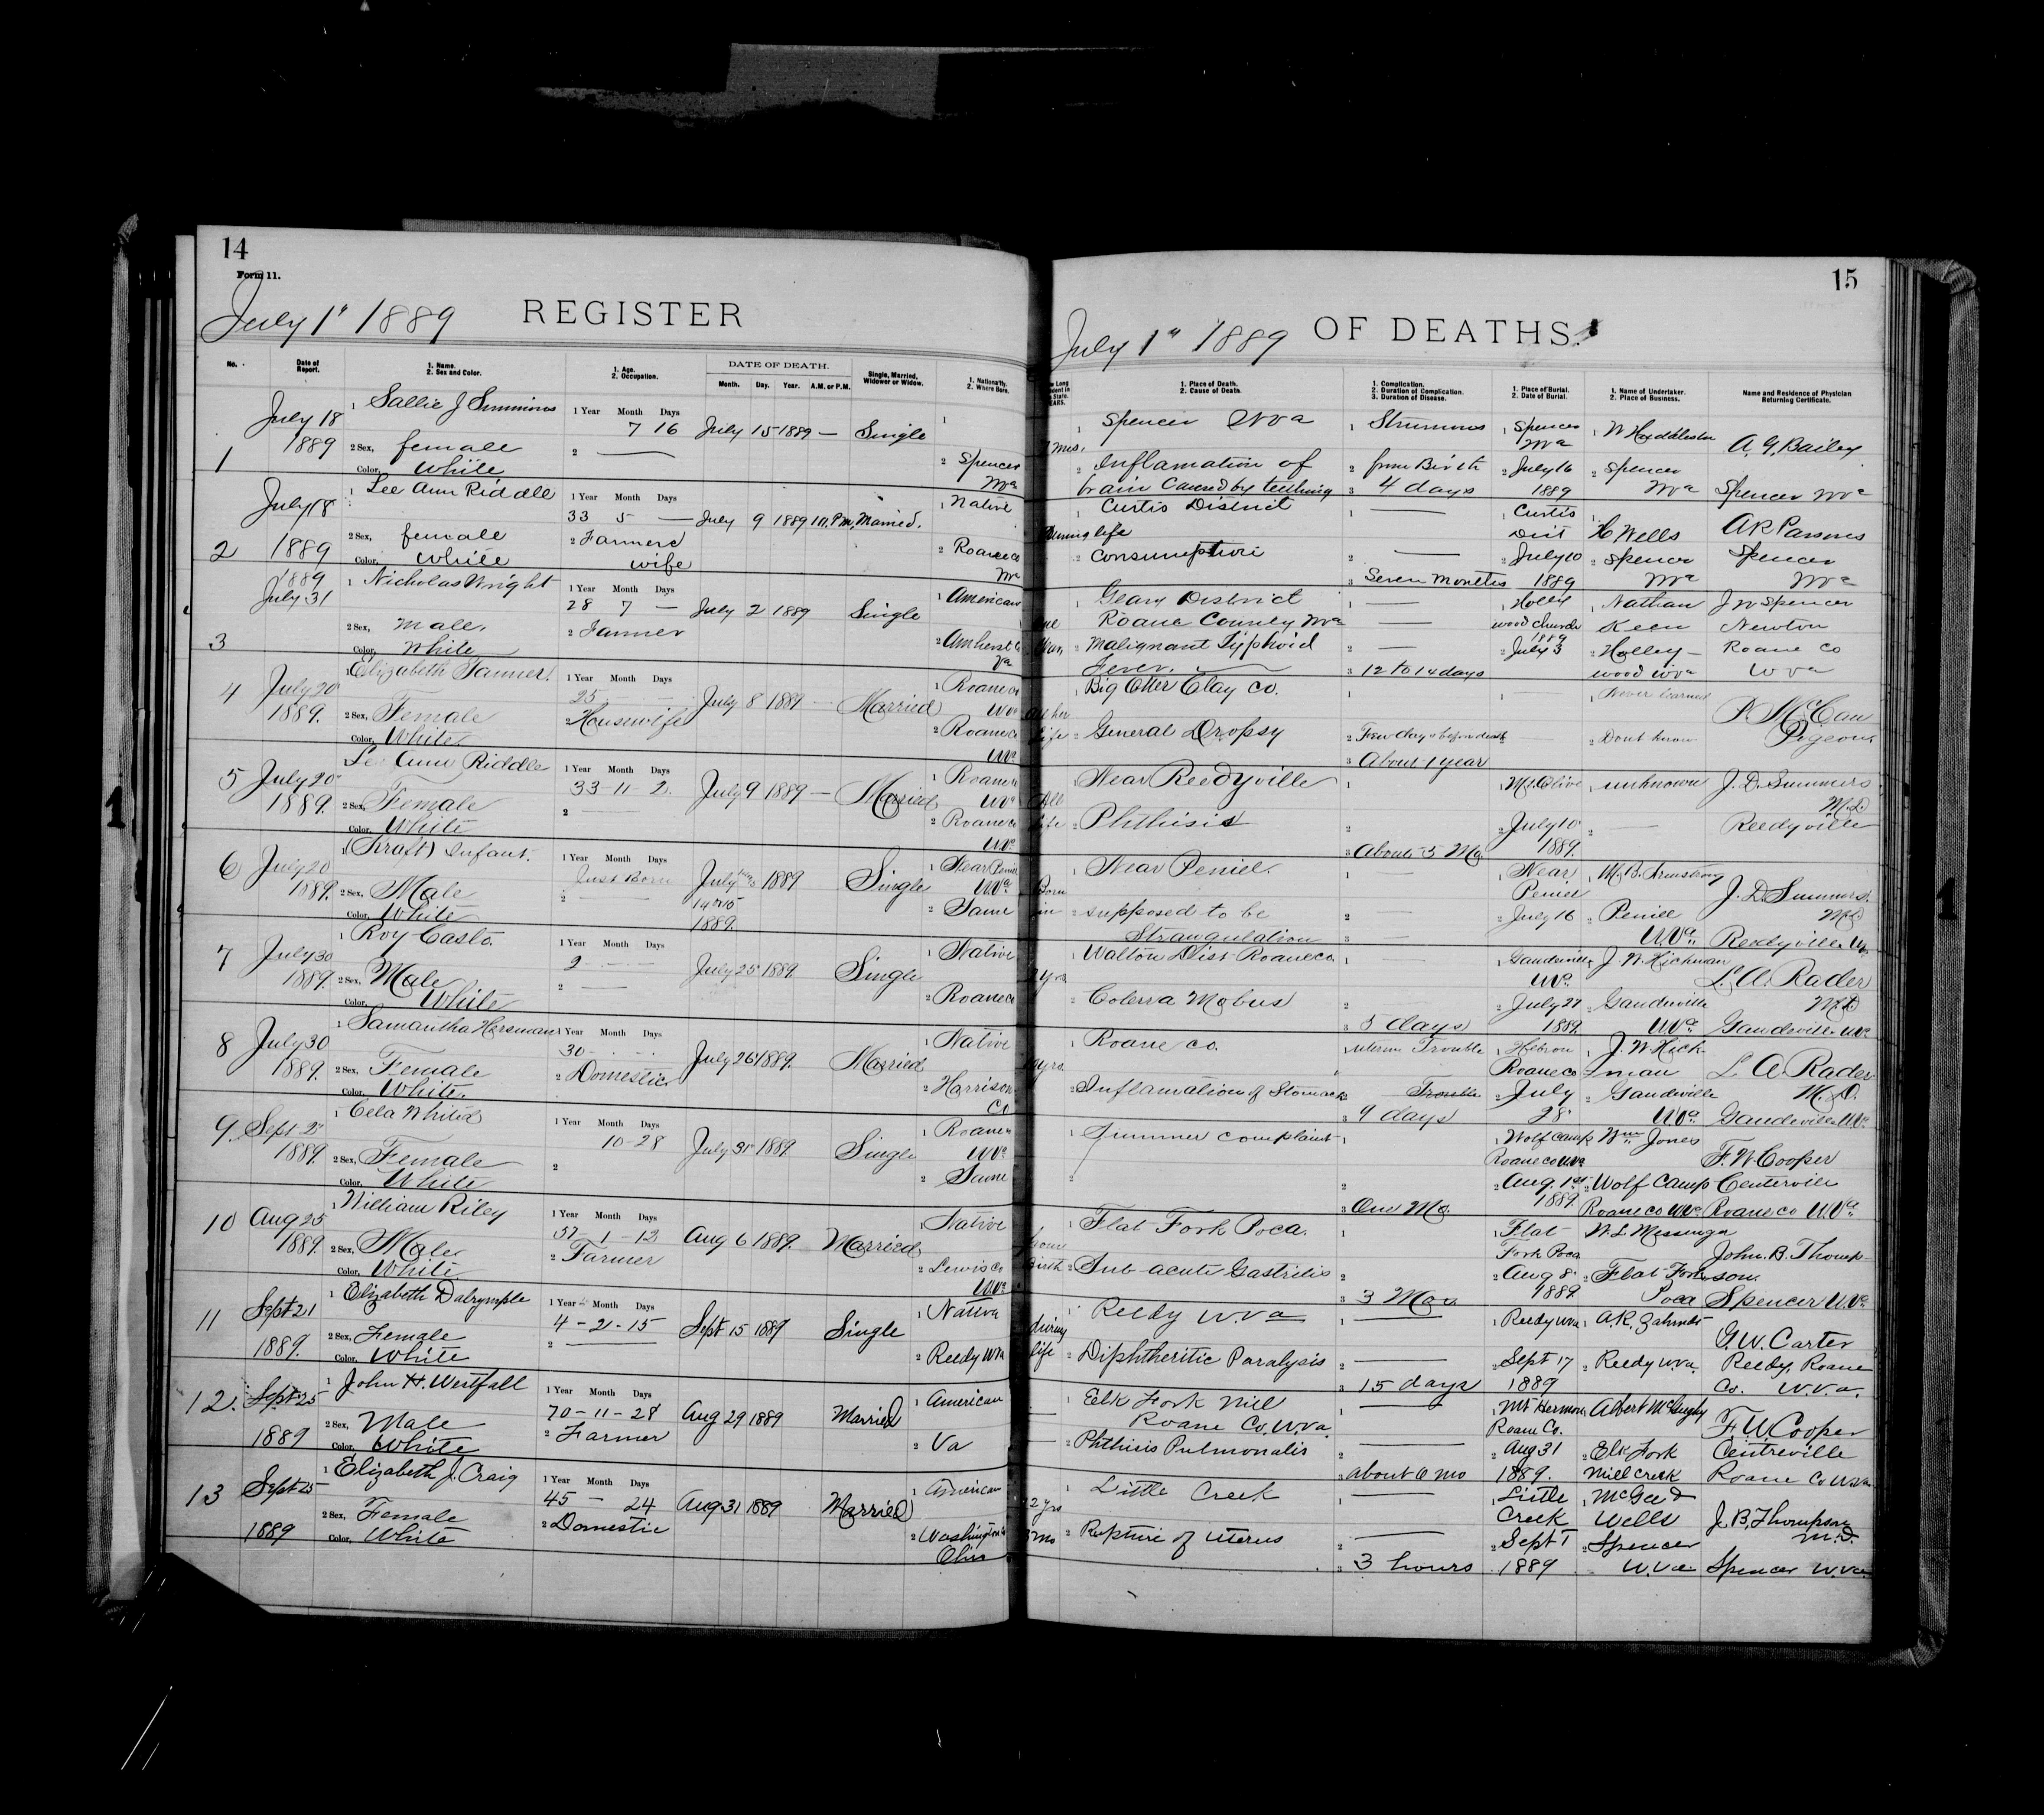 14
Form 11.
July 1" 1889 REGISTER
No. Date of Report. 1. Name. 2. Sex and Color. 1. Age. 2. Occupation. DATE OF DEATH. Month. Day. Year. A.M. or P.M. Single, Married, Widower or Widow. 1. Nationality. 2. Where Born.
1 July 18 1889
1 Sallie J Simmons
2 Sex, female
Color, White
1 Year Month Days
7 16
2 —
July 15 1889 — Single
1
2 Spencer
2 July 18 1889
1 Lee Ann Riddle
2 Sex, female
Color, White
1 Year Month Days
33 5 —
2 Farmers
wife
July 9 1889 Married.
1 Native
2 Roane co
3 1889 July 31
1 Nicholas Wright
2 Sex, male,
Color, White
1 Year Month Days
28 7 —
2 Farmer
July 2 1889 Single
1 American
2 Amherst Co
Va
4 July 20 1889.
1 Elizabeth Tanner.
2 Sex, Female
Color, White
1 Year Month Days
25
2 Housewife
July 8 1889 — Married
1 Roane co
2 Roane co
5 July 20 1889.
Le Ann Riddle
2 Sex, Female
Color, White
1 Year Month Days
33-11-2.
2 —
July 9 1889 — Married
1 Roane co
2 Roane co
6 July 20 1889.
1 (Kraft) Infant.
2 Sex, Male
Color, White
1 Year Month Days
Just Born
2 —
July 1889
14 or 15
1889.
Single
1 Near Peniel
2 Same
7 July 30 1889.
1 Roy Casto.
2 Sex, Male
Color, White
1 Year Month Days
2
2 —
July 25 1889. Single
1 Native
2 Roane co
8 July 30 1889.
1 Samantha Hersman
2 Sex, Female
Color, White.
1 Year Month Days
30
2 Domestic
July 26 1889. Married
1 Native
2 Harrison
Co
9. Sept 1889.
1 Cela White
2 Sex, Female
Color, White
1 Year Month Days
10-28
2
July 31 1889. Single
1 Roane co
2 Same
10 Aug 25 1889.
1 William Riley
2 Sex, Male
Color, White
1 Year Month Days
57-1-13
2 Farmer
Aug 6 1889. Married
1 Native
2 Lewis Co
11 Sept 21 1889.
1 Elizabeth Dalrymple
2 Sex, Female
Color, White
1 Year Month Days
4-21-15
2 —
Sept 15 1889 Single
1 Native
2 Reedy WVa
12. Sept 25 1889
1 John H. Westfall
2 Sex, Male
Color, White
1 Year Month Days
70-11-28
2 Farmer
Aug 29 1889 Married
1 American
2 Va
13 Sept 25 1889
1 Elizabeth J. Craig
2 Sex, Female
Color, White
1 Year Month Days
45 — 24
2 Domestic
Aug 31 1889 Married
1 American
2 Washington Co
Ohio
15
July 1" 1889 OF DEATHS.
1. Place of Death. 2. Cause of Death. 1. Complication. 2. Duration of Complication. 3. Duration of Disease. 1. Place of Burial. 2. Date of Burial. 1. Name of Undertaker. 2. Place of Business. Name and Residence of Physician Returning Certificate.
1 Spencer Wva
2 Inflamation of
brain caused by teething
2 from Birth
3 4 days
1 Spencer
2 July 16
1889
1 W Huddleston
2 Spencer
A. G. Bailey
Spencer
During life
1 Curtis District
2 consumption
1 —
2 —
3 Seven months
1 Curtis
Dist
2 July 10
1889
H Wells
2 Spencer
A R Parsons
Spencer
1 Geary District
Roane County
2 Malignant Typhoid
Fever.
1 —
2 —
3 12 to 14 days
1 Holly
wood church
1889
2 July 3
1 Nathan
Keen
2 Holley-
wood wva
J W Spencer
Newton
Roane Co
Wva
1 Big Otter Clay Co.
2 General Dropsy
1
2 Few days before death
3 About 1 year
1 Never learned
2 Dont know
P. McCan
Pigeon.
All
life
1 Near Reedyville
2 Phthisis
1
2
3 About 5 Mo.
1 Mt. Olive
2 July 10
1889.
1 unknown
2 —
J. D. Summers
M.D.
Reedyville
Born
1 Near Peniel.
2 supposed to be
Strangulation
1 Near
Peniel
2 July 16
1 M. B. Armstrong
2 Peniel
W.Va.
J. D. Summers.
M.D
Reedyville
1 Walton Dist Roane co.
2 Colerra Mobus
1 —
2
3 5 days
1 Gandeville
W.Va
2 July 27
1889.
1 J. W. Hickman
2 Gandeville
W.Va
L. A. Rader
M.D
Gandeville W.Va
1 Roane co.
2 Inflamation of Stomach
1 uterine Trouble
2 Trouble
3 9 days
1 Hebron
Roane co
2 July
28
1 J. W. Hick-
man
2 Gandeville
W.Va
L. A. Rader
M.D.
Gandeville W.Va
1 Summer complaint
2
1
2
3 One Mo.
1 Wolf Camp
Roane co W.Va
2 Aug. 1st
1889.
1 Wm Jones
2 Wolf Camp
Roane co W.Va
F. W. Cooper
Centerville
Roane co W.Va.
Birth
1 Flat Fork Poca.
2 Sub-acute Gastritis
1
2
3 3 Mos.
1 Flat
Fork Poca
2 Aug 8
1889.
1 W. L. Messenger
2 Flat Fork
Poca
John. B. Thomp-
son.
Spencer W.Va
during
life
1 Reedy W.Va
2 Diphtheritic Paralysis
1 —
2 —
3 15 days
1 Reedy Wva
2 Sept 17
1889
1 A.K. Zahrndt
2 Reedy W.Va.
G. W. Carter
Reedy, Roane
Co. W.Va.
1 Elk Fork Mill
Roane Co. W.Va.
2 Phthisis Pulmonalis
1 —
2 —
3 about 6 mo
1 Mt Hermon
Roane Co.
2 Aug 31
1889.
1 Albert
2 Elk Fork
Mill Creek
F. W. Cooper
Centreville
Roane Co W.Va
1 Little Creek
2 Rupture of uterus
1 —
2 —
3 3 hours
1 Little
Creek
2 Sept 1
1889
1 McGee &
Wells
2 Spencer
W.Va
J. B. Thompson
M.D.
Spencer W.Va.
1
1